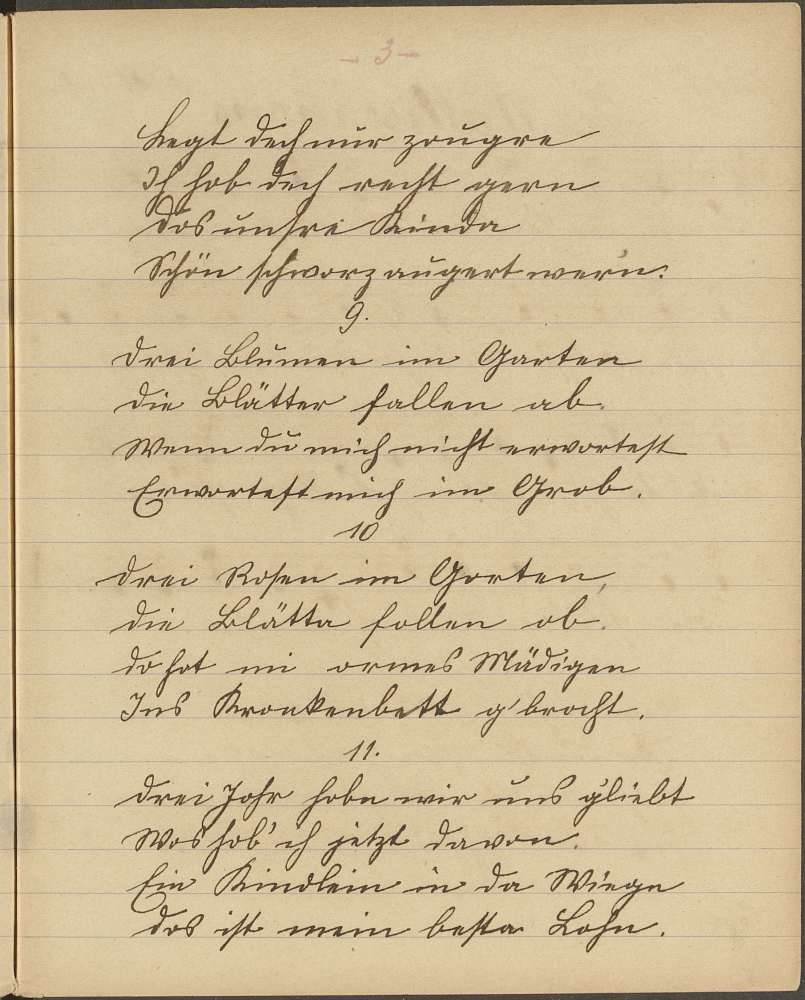 - 3 -
Legt dich nur zougre
Ich hob dich recht gern
Dos unsre Kinda
Schön schworzaugert wer'n.
9.
Drei Blumen im Garten
Die Blätter fallen ab.
Wenn du mich nicht erwortest
Erwortest mich im Grob.
10
Drei Rosen im Gorten,
Die Blätta follen ob.
Do hot mi ormes Mädigen
Ins Kronkenbett g'brocht.
11.
Drei Johr hobn wir uns g'liebt
Wos hob' ich jetzt davon.
Ein Kindlein in da Wiege
Dos ist mein besta Lohn.